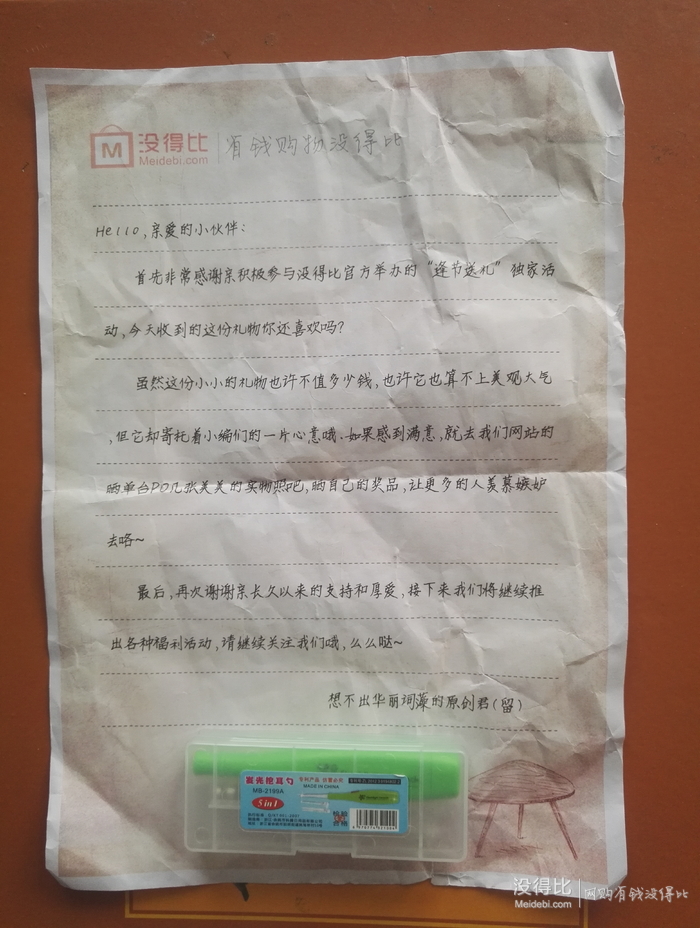 没得比
Meidebi.com
有钱购物没得比
Hello,亲爱的小伙伴:
首先非常感谢亲积极参与没得比官方举办的“逢节送礼”独家活
动,今天收到的这份礼物你还喜欢吗?
虽然这份小小的礼物也许不值多少钱,也许它也算不上美观大气
,但它却寄托着小编们的一片心意哦、如果感到满意,就去我们网站的
晒单台PO几张美美的实物照吧,晒自己的奖品,让更多的人羡慕嫉妒
去咯~
最后,再次谢谢亲长久以来的支持和厚爱,接下来我们将继续推
出各种福利活动,请继续关注我们哦,么么哒~
想不出华丽词藻的原创君(留)
发光挖耳勺
专利产品 仿冒必究
MADE IN CHINA
MB-2199A
5 in 1
检验
合格
没得比
Meidebi.com
网购有钱没得比